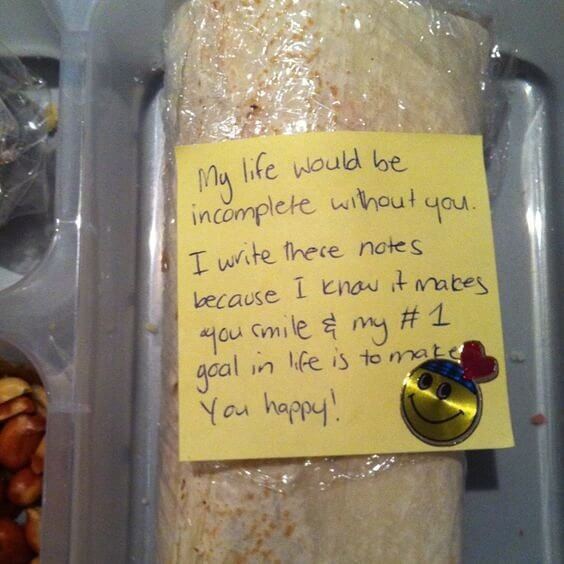 My life would be
incomplete without you.
I write these notes
because I know it makes
you smile & my #1
goal in life is to make
You happy!